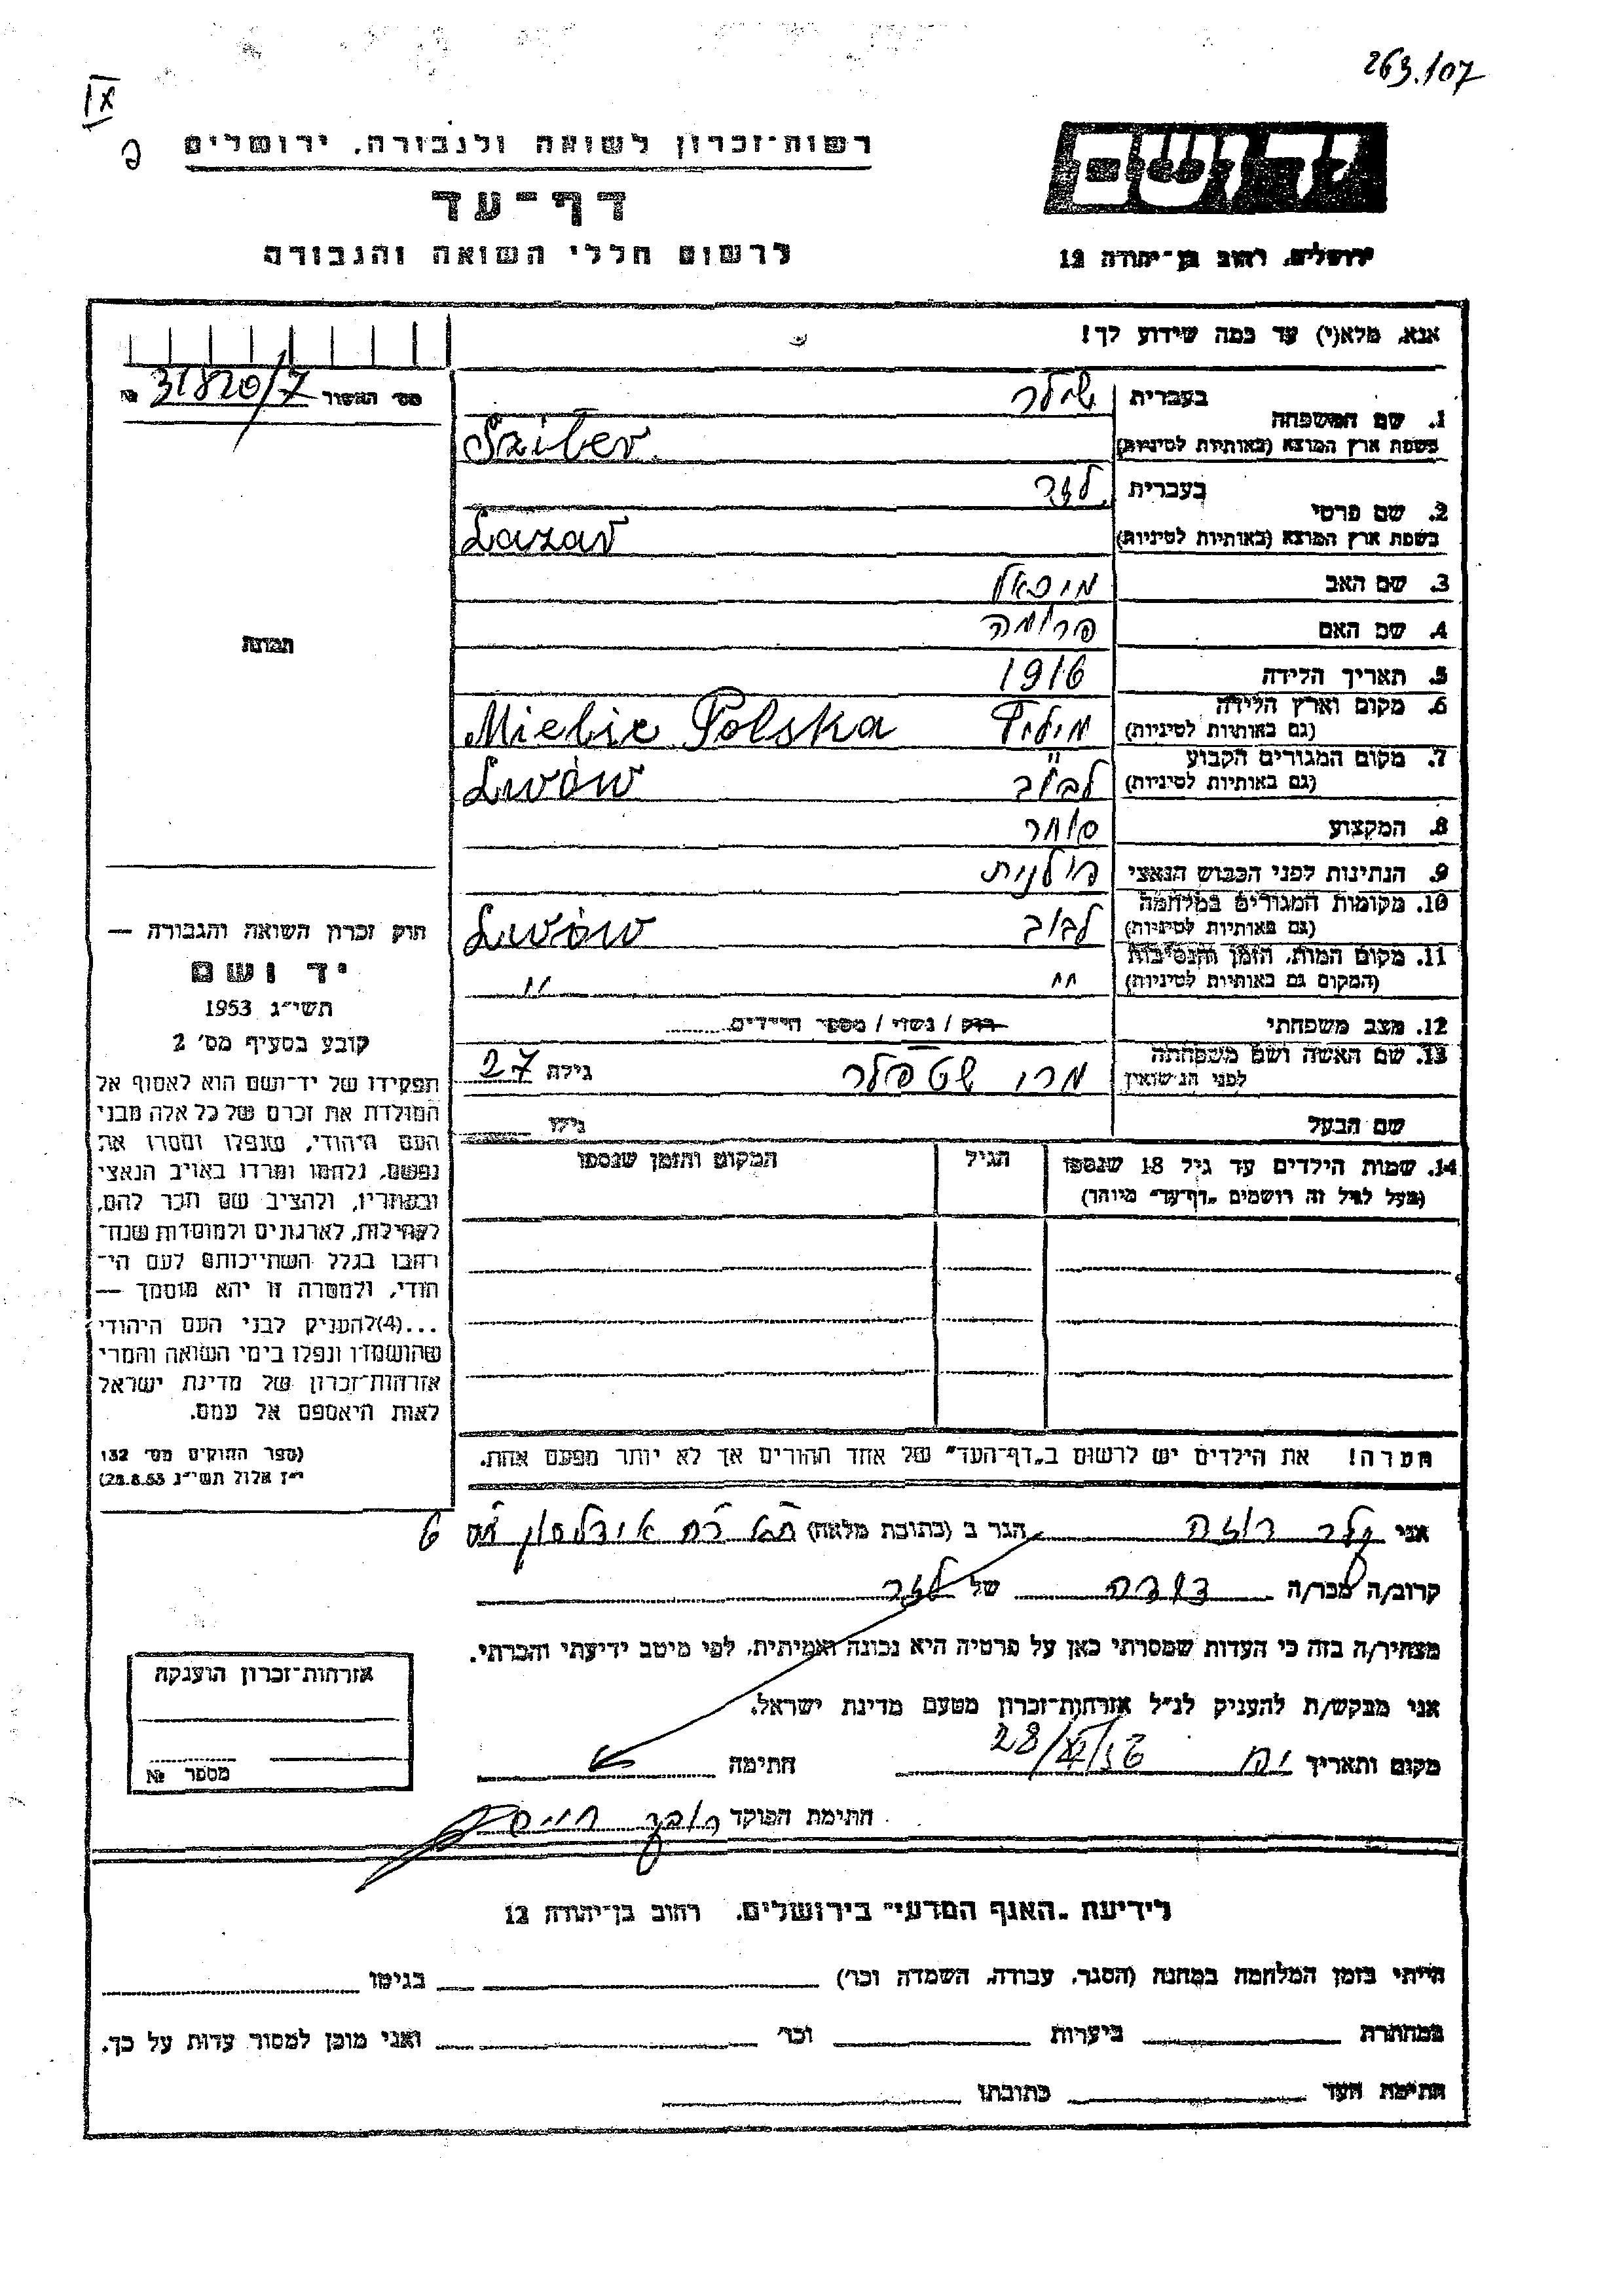 263.107
IX
רשות־זכרון לשואה ולגבורה, ירושלים
דף־עד
לרשום חללי השואה והגבורה
ירושלים, רחוב בן־יהודה 12
אנא, מלא(י) עד כמה שידוע לך!
מס׳ האשור 31820/7 №
1. שם המשפחה
בעברית שילר
בשפת ארץ המוצא (באותיות לטיניות) Sziler
2. שם פרטי
בעברית לזר
בשפת ארץ המוצא (באותיות לטיניות) Lazar
3. שם האב מיכאל
4. שם האם פרומה
5. תאריך הלידה 1916
6. מקום וארץ הלידה
(גם באותיות לטיניות) Mielic Polska
7. מקום המגורים הקבוע
(גם באותיות לטיניות) לבוב Lwów
8. המקצוע סוחר
9. הנתינות לפני הכבוש הנאצי פולנית
10. מקומות המגורים במלחמה
(גם באותיות לטיניות) לבוב Lwów
11. מקום המות, הזמן והנסיבות
(המקום גם באותיות לטיניות) " "
12. מצב משפחתי רווק / נשוי / מספר הילדים
13. שם האשה ושם משפחתה
לפני הנישואין גילה 27
שם הבעל גילו
14. שמות הילדים עד גיל 18 שנספו
(מעל לגיל זה רושמים „דף־עד״ מיוחד)
הגיל
המקום והזמן שנספו
תמונה
חוק זכרון השואה והגבורה —
יד ושם
תשי״ג 1953
קובע בסעיף מס׳ 2
תפקידו של יד־ושם הוא לאסוף אל
המולדת את זכרם של כל אלה מבני
העם היהודי, שנפלו ומסרו את
נפשם, נלחמו ומרדו באויב הנאצי
ובעוזריו, ולהציב שם וזכר להם,
לקהילות, לארגונים ולמוסדות שנח־
רבו בגלל השתייכותם לעם הי־
הודי, ולמטרה זו יהא מוסמך —
...(4) להעניק לבני העם היהודי
שהושמדו ונפלו בימי השואה והמרי
אזרחות־זכרון של מדינת ישראל
לאות היאספם אל עמם.
(ספר החוקים מס׳ 132
י״ז אלול תשי״ג 28.8.53)
הערה! את הילדים יש לרשום ב„דף־העד״ של אחד ההורים אך לא יותר מפעם אחת.
אני קלר רוזה הגר ב (כתובת מלאה) 6
קרוב/ה מכר/ה דודה של לזר
מצהיר/ה בזה כי העדות שמסרתי כאן על פרטיה היא נכונה ואמיתית, לפי מיטב ידיעתי והכרתי.
אני מבקש/ת להעניק לנ״ל אזרחות־זכרון מטעם מדינת ישראל.
מקום ותאריך חתימה
חתימת הפוקד
אזרחות־זכרון הוענקה
מספר №
לידיעת „האגף המדעי״ בירושלים, רחוב בן־יהודה 12
הייתי בזמן המלחמה במחנה (הסגר, עבודה, השמדה וכו׳) בגיטו
במחתרת ביערות וכו׳ ואני מוכן למסור עדות על כך.
חתימת העד כתובתו